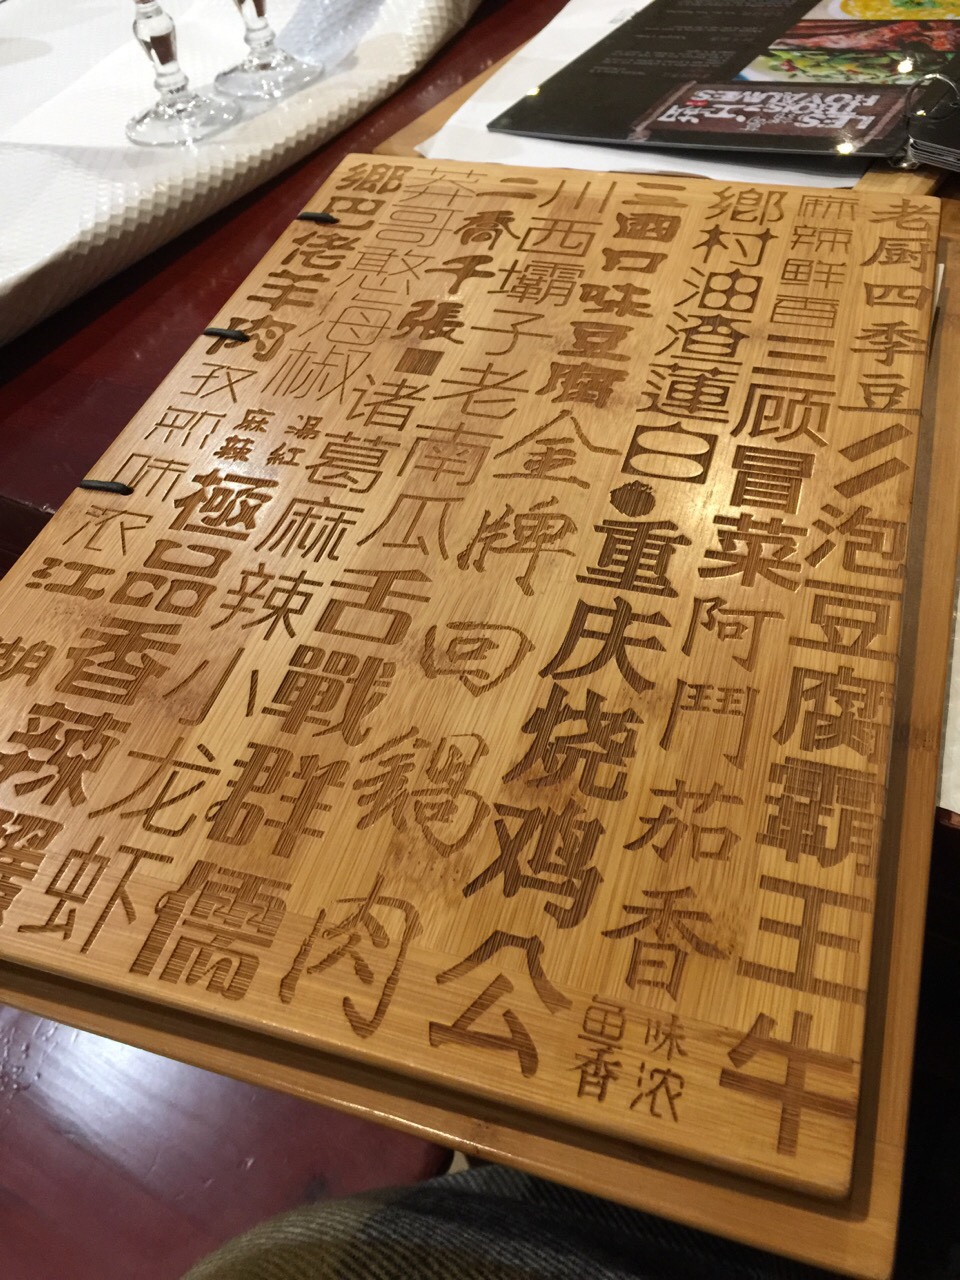 老厨四季豆
泡豆腐霸王牛
麻辣鲜香三顾冒菜
阿鬥茄香
鱼香
味浓
鄉村油渣蓮白
重庆烧鸡公
三國口味豆腐
金牌回鍋肉
川西壩子老南瓜
舌戰群儒
二香千張
诸葛麻辣小龙虾
莽哥憨海椒
麻辣
湯紅
極品香辣
鄉巴佬羊肉
味浓
江湖
LES
TROIS
ROYAUMES